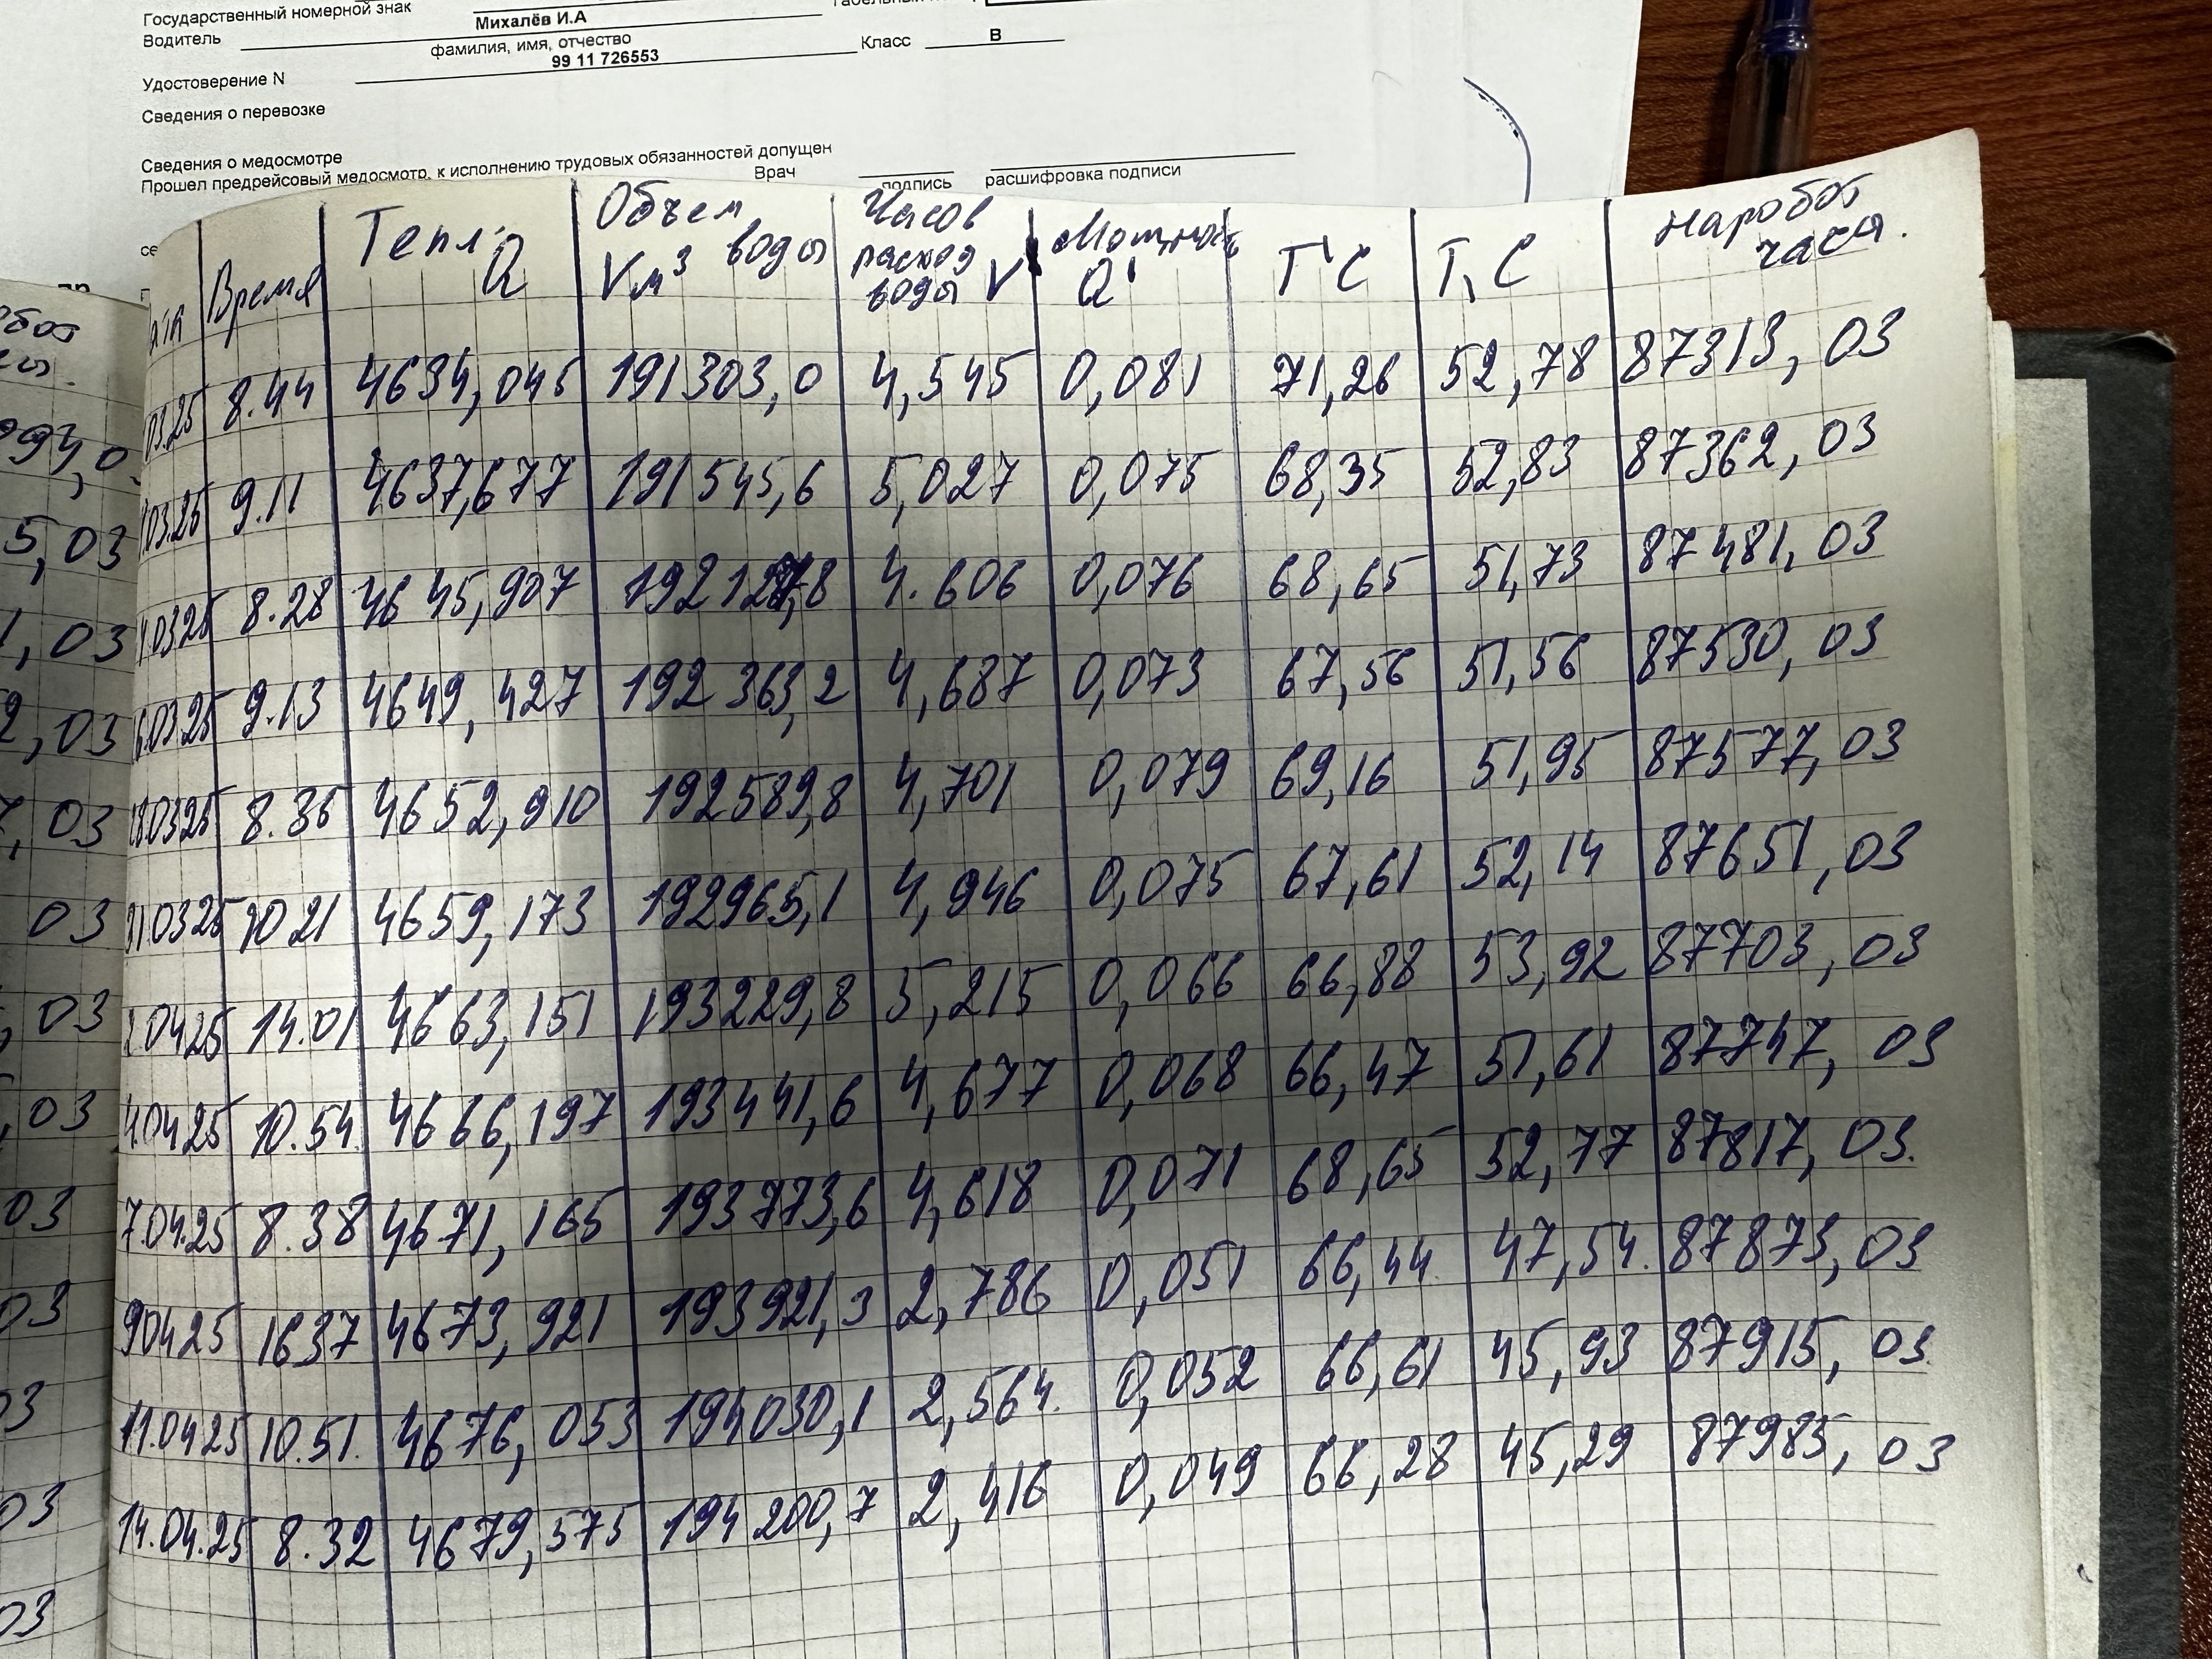 Государственный номерной знак
Михалёв И.А
Водитель
фамилия, имя, отчество
Класс В
99 11 726553
Удостоверение N
Сведения о перевозке
Сведения о медосмотре
Прошел предрейсовый медосмотр, к исполнению трудовых обязанностей допущен
Врач
подпись расшифровка подписи
Время Тепл. Q Объем воды Vм³ Часов расход воды V Мощность Q' Т'С Т, С Наработ часа.
03.25 8.44 4634,045 191303,0 4,545 0,081 71,26 52,78 87313,03
03.25 9.11 4637,677 191545,6 5,027 0,075 68,35 52,83 87362,03
03 25 8.28 4645,907 4.606 0,076 68,65 51,73 87481,03
03 25 9.13 4649,427 192363,2 4,687 0,073 67,56 51,56 87530,03
28 03 25 8.36 4652,910 192589,8 4,701 0,079 69,16 51,95 87577,03
31 03 25 10 21 4659,173 192965,1 4,946 0,075 67,61 52,14 87651,03
04 25 14.01 4663,151 193229,8 5,215 0,066 66,88 53,92 87703,03
4.04 25 10.54 4666,197 193441,6 4,677 0,068 66,47 51,61 87747,03
7.04.25 8.38 4671,165 193773,6 4,618 0,071 68,65 52,77 87817,03.
9 04 25 16 37 4673,921 193921,3 2,786 0,051 66,44 47,54. 87873,03
11.04 25 10.51. 4676,053 194030,1 2,564. 0,052 66,61 45,93 87915,03.
14.04.25 8.32 4679,575 194200,7 2,416 0,049 66,28 45,29 87985,03